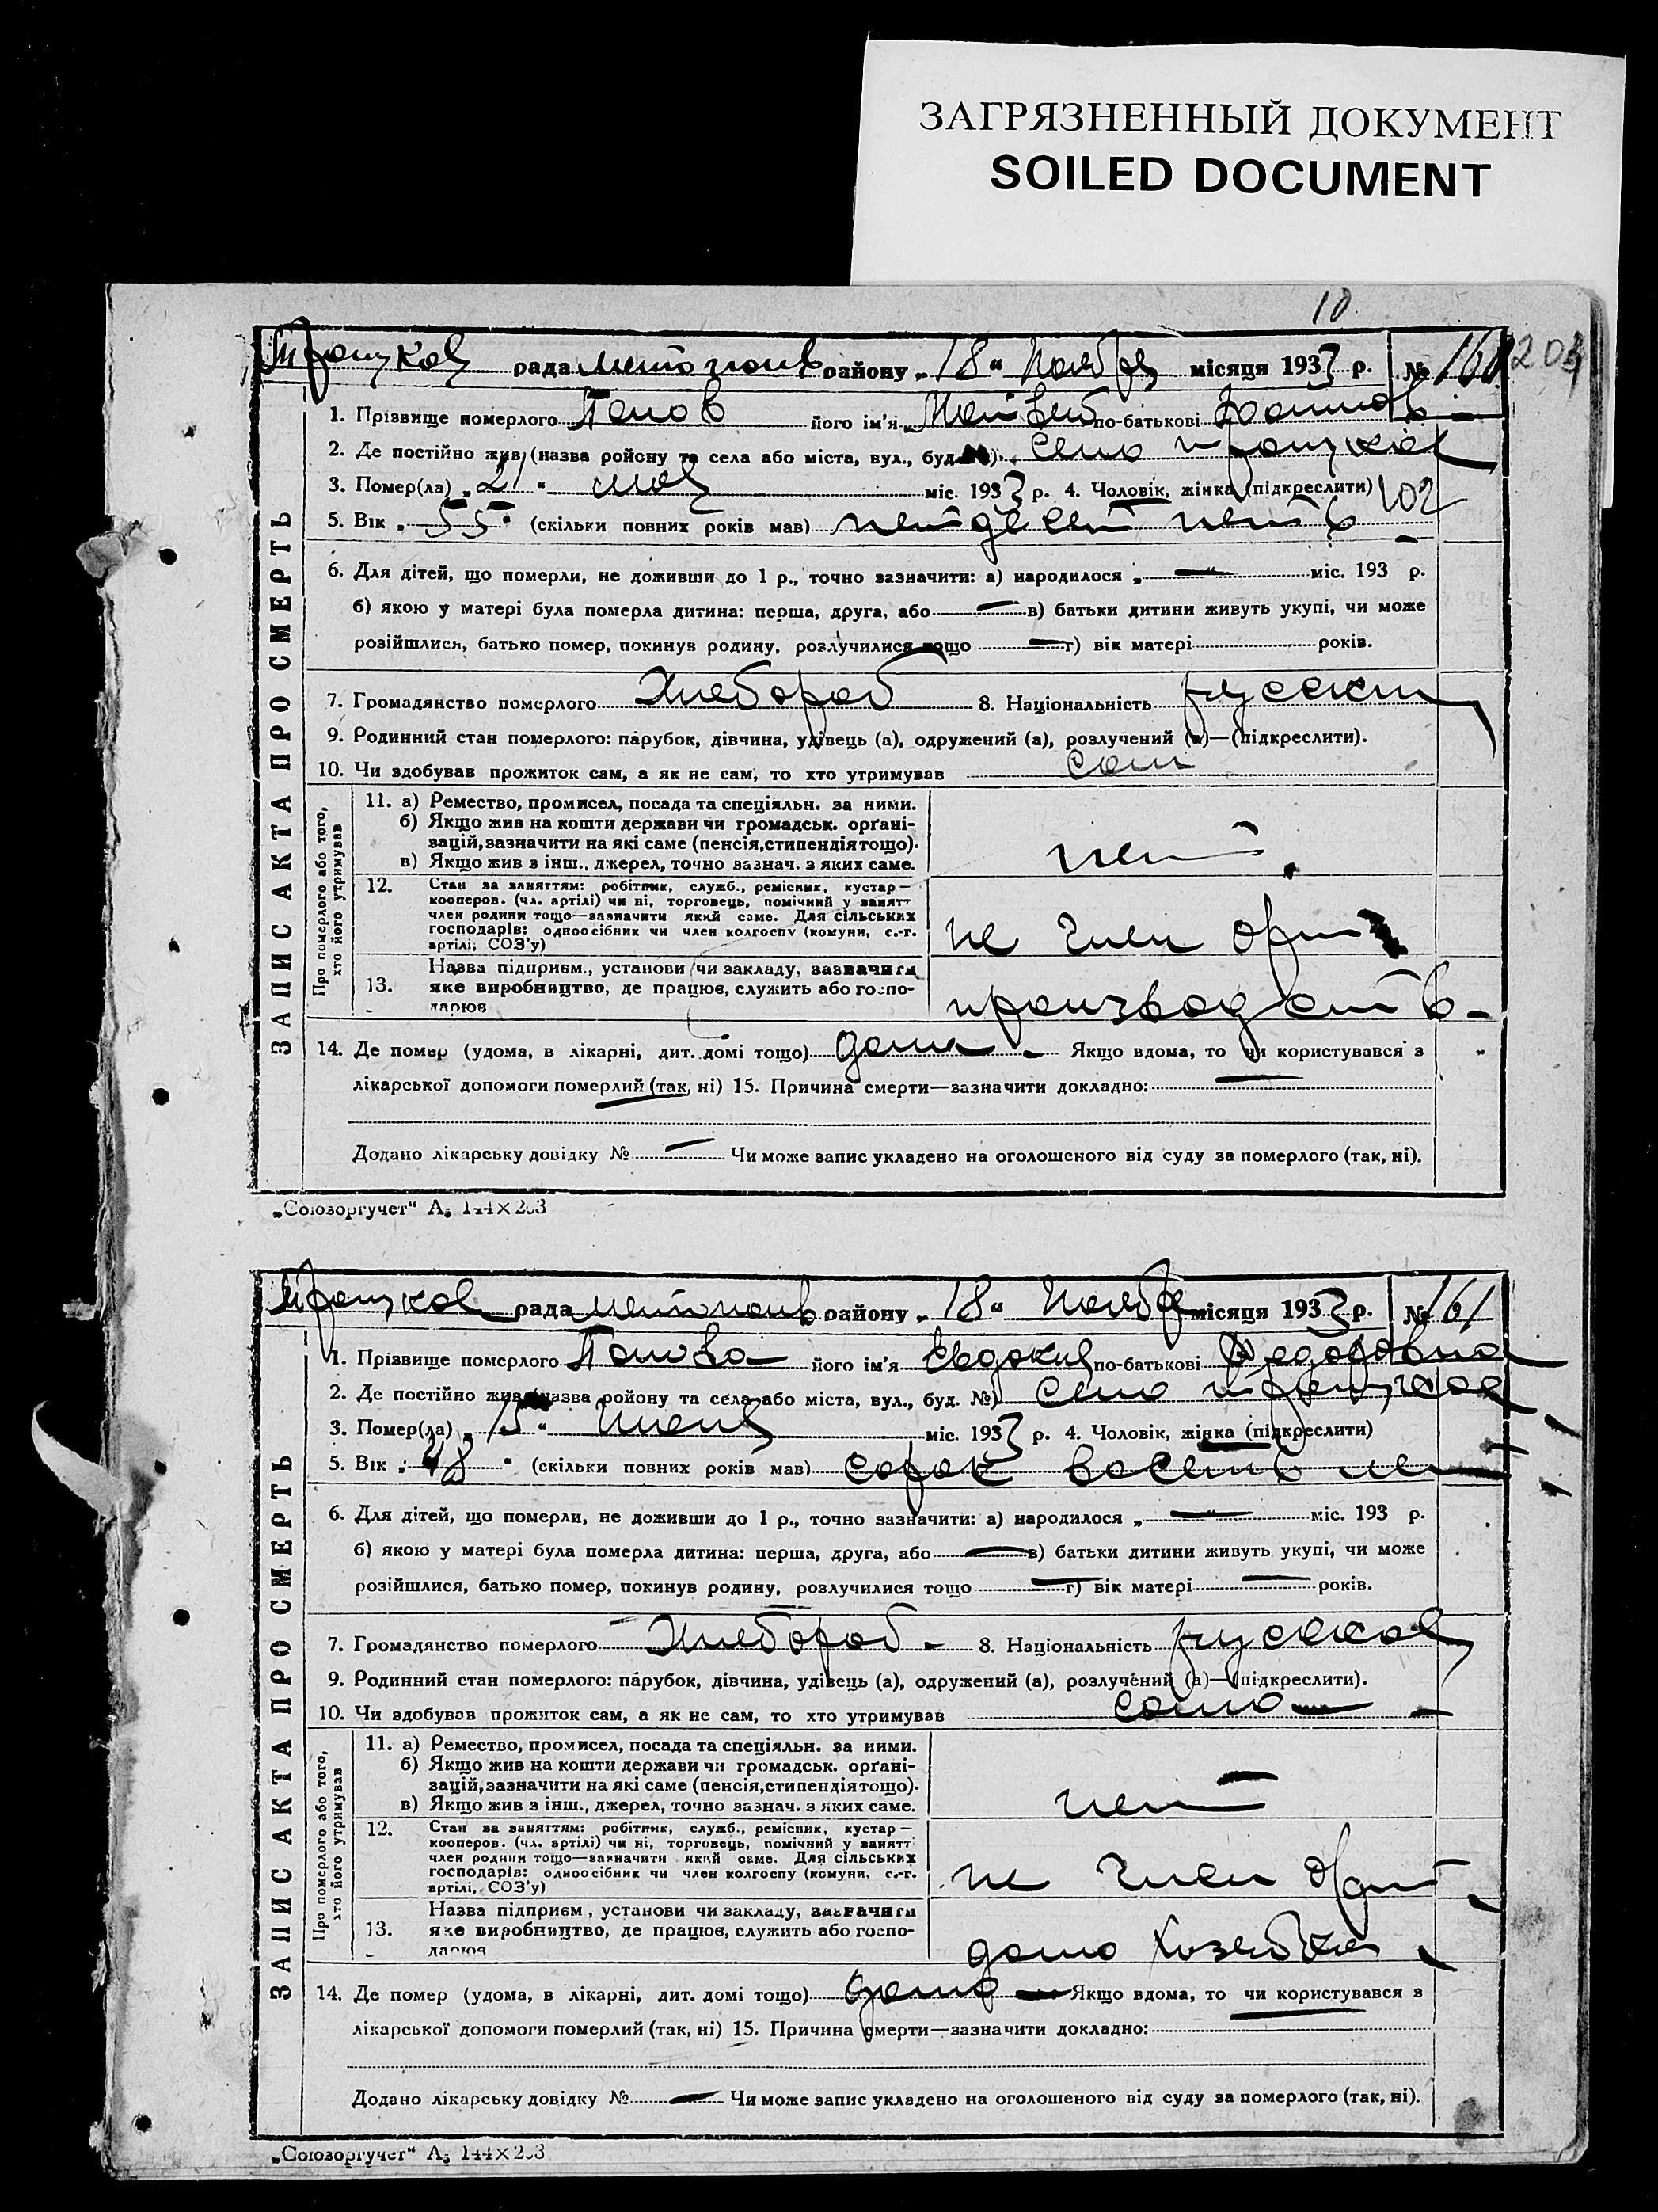 ЗАГРЯЗНЕННЫЙ ДОКУМЕНТ
SOILED DOCUMENT
10
рада району „18“ Ноября місяця 1933 р. № 160 203
1. Прізвище померлого Попов його ім'я Матвей по-батькові
2. Де постійно жив (назва ройону та села або міста, вул., буд. №) село
3. Помер(ла) „21“ мая міс. 1933 р. 4. Чоловік, жінка (підкреслити) 102
5. Вік „55“ (скільки повних років мав) петдесят петь
6. Для дітей, що померли, не доживши до 1 р., точно зазначити: а) народилося „—“ міс. 193 р.
б) якою у матері була померла дитина: перша, друга, або — в) батьки дитини живуть укупі, чи може
розійшлися, батько помер, покинув родину, розлучилися тощо — г) вік матері років.
7. Громадянство померлого Хлебороб 8. Національність русски
9. Родинний стан померлого: парубок, дівчина, удівець (а), одружений (а), розлучений (а)—(підкреслити).
10. Чи здобував прожиток сам, а як не сам, то хто утримував сам
ЗАПИС АКТА ПРО СМЕРТЬ
Про померлого або того, хто його утримував
11. а) Ремество, промисел, посада та спеціяльн. за ними.
б) Якщо жив на кошти держави чи громадськ. орґані-
зацій, зазначити на які саме (пенсія, стипендія тощо).
в) Якщо жив з інш., джерел, точно зазнач. з яких саме.
нет.
12. Стан за заняттям: робітник, служб., ремісник, кустар—
кооперов. (чл. артілі) чи ні, торговець, помічний у занятт
член родини тощо—зазначити який саме. Для сільських
господарів: одноосібник чи член колгоспу (комуни, с.-г.
артілі, СОЗ'у)
не член
13. Назва підприєм., установи чи закладу, зазначити
яке виробництво, де працює, служить або госпо-
дарює
14. Де помер (удома, в лікарні, дит. домі тощо) дома - Якщо вдома, то чи користувався з
лікарської допомоги померлий (так, ні) 15. Причина смерти—зазначити докладно:
Додано лікарську довідку № — Чи може запис укладено на оголошеного від суду за померлого (так, ні).
„Союзоргучет“ А5 144×203
рада району „18“ Ноября місяця 1933 р. № 161
1. Прізвище померлого Попова його ім'я Евдокия по-батькові Федоровна
2. Де постійно жив (назва ройону та села або міста, вул., буд. №) село
3. Помер(ла) „15“ міс. 1933 р. 4. Чоловік, жінка (підкреслити)
5. Вік „48“ (скільки повних років мав) сорок восемь лет
6. Для дітей, що померли, не доживши до 1 р., точно зазначити: а) народилося „—“ міс. 193 р.
б) якою у матері була померла дитина: перша, друга, або — в) батьки дитини живуть укупі, чи може
розійшлися, батько помер, покинув родину, розлучилися тощо — г) вік матері — років.
7. Громадянство померлого Хлебороб - 8. Національність русская
9. Родинний стан померлого: парубок, дівчина, удівець (а), одружений (а), розлучений (а)—(підкреслити).
10. Чи здобував прожиток сам, а як не сам, то хто утримував сама —
ЗАПИС АКТА ПРО СМЕРТЬ
Про померлого або того, хто його утримував
11. а) Ремество, промисел, посада та спеціяльн. за ними.
б) Якщо жив на кошти держави чи громадськ. орґані-
зацій, зазначити на які саме (пенсія, стипендія тощо).
в) Якщо жив з інш., джерел, точно зазнач. з яких саме.
нет
12. Стан за заняттям: робітник, служб., ремісник, кустар—
кооперов. (чл. артілі) чи ні, торговець, помічний у занятт
член родини тощо—зазначити який саме. Для сільських
господарів: одноосібник чи член колгоспу (комуни, с.-г.
артілі, СОЗ'у)
не член
13. Назва підприєм., установи чи закладу, зазначити
яке виробництво, де працює, служить або госпо-
дарює
14. Де помер (удома, в лікарні, дит. домі тощо) дома — Якщо вдома, то чи користувався з
лікарської допомоги померлий (так, ні) 15. Причина смерти—зазначити докладно:
Додано лікарську довідку № — Чи може запис укладено на оголошеного від суду за померлого (так, ні).
„Союзоргучет“ А5 144×203